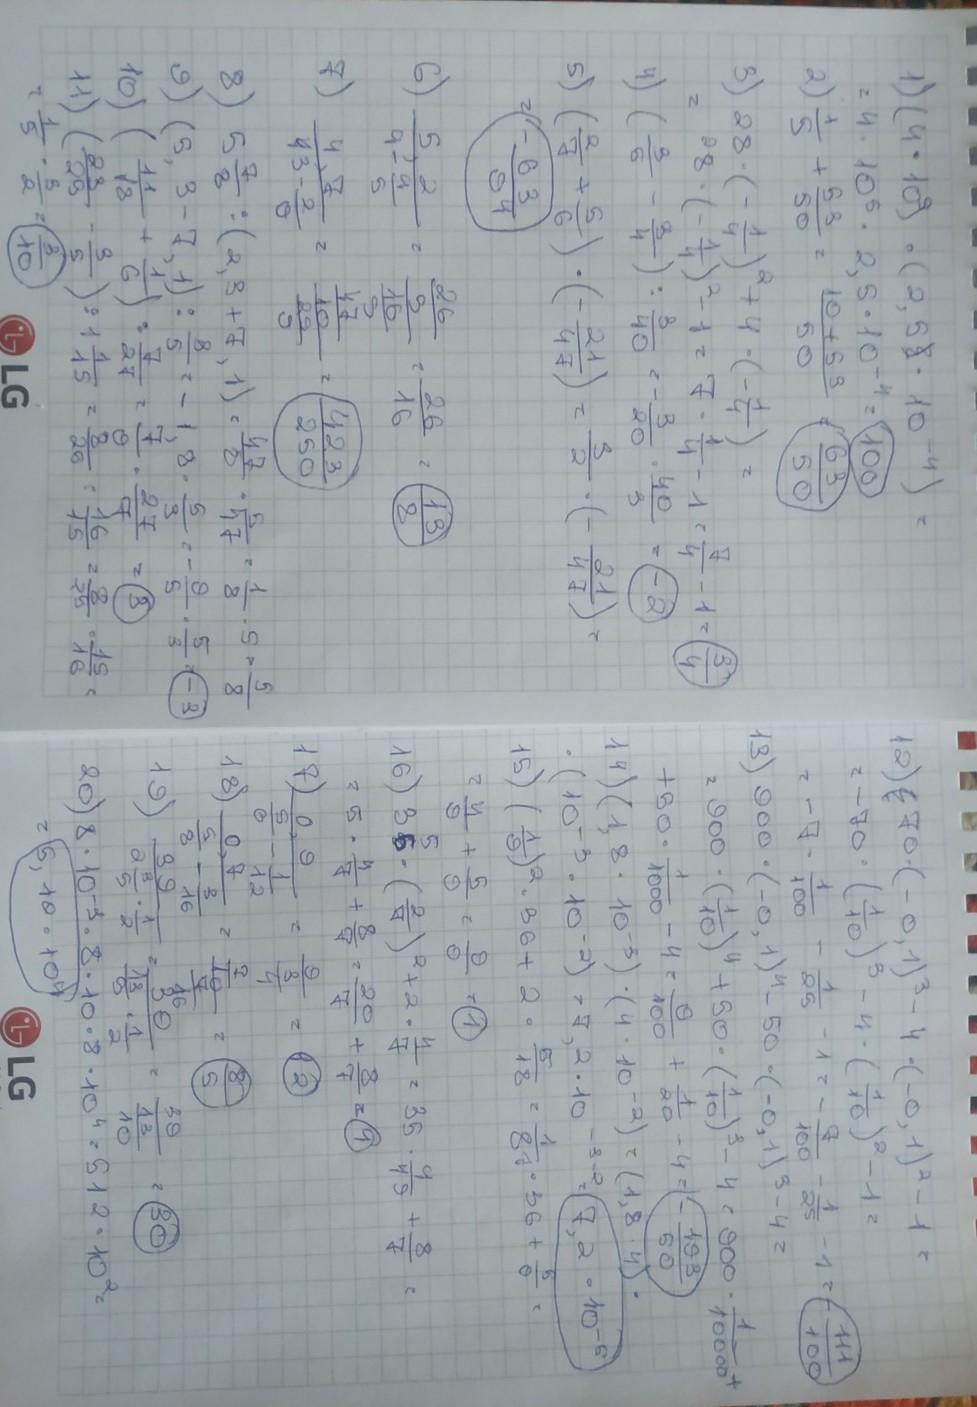 1) (4·10⁹)·(2,5·10⁻⁴) =
= 4·10⁶·2,5·10⁻⁴ = 100
2) 1/5 + 53/50 = (10+53)/50 = 63/50
3) 28·(-1/4)² + 4·(-1/4) =
= 28·(-1/4)² - 1 = 7·1/4 - 1 = 7/4 - 1 = 3/4
4) (3/6 - 3/4) : 3/40 = -3/20 · 40/3 = -2
5) (2/7 + 5/6)·(-21/47) = 3/2·(-21/47) =
= -63/94
6) 5,2/(4 - 4/5) = 26/5 / 16/5 = 26/16 = 13/8
7) 4,7/(43-2/9) = 47/10 / 25/9 = 423/250
8) 5 7/8 : (2,3+7,1) = 47/8 · 5/47 = 1/8 · 5 = 5/8
9) (5,3-7,1) : 3/5 = -1,8 · 5/3 = -9/5 · 5/3 = -3
10) (11/18 + 1/6) : 7/27 = 7/9 · 27/7 = 3
11) (23/25 - 3/5) : 1 1/15 = 8/25 : 16/15 = 8/25 · 15/16 =
= 1/5 · 3/2 = 3/10
12) 70·(-0,1)³ - 4·(-0,1)² - 1 =
= -70·(1/10)³ - 4·(1/10)² - 1 =
= -7·1/100 - 1/25 - 1 = -7/100 - 1/25 - 1 = -111/100
13) 900·(-0,1)⁴ - 50·(-0,1)³ - 4 =
= 900·(1/10)⁴ + 50·(1/10)³ - 4 = 900·1/10000 +
+ 50·1/1000 - 4 = 9/100 + 1/20 - 4 = -193/50
14) (1,8·10⁻³)·(4·10⁻²) = (1,8·4)·
·(10⁻³·10⁻²) = 7,2·10⁻³⁻² = 7,2·10⁻⁵
15) (1/9)²·36 + 2·5/18 = 1/81·36 + 5/9 =
= 4/9 + 5/9 = 9/9 = 1
16) 35·(2/7)² + 2·4/7 = 35·4/49 + 8/7 =
= 5·4/7 + 8/7 = 20/7 + 8/7 = 4
17) 0,9/(5/6 - 1/12) = 9/3/4 = 12
18) 0,7/(5/8 - 3/16) = 7/10 / 7/16 = 8/5
19) 39/(2 3/5 · 1/2) = 39/(13/5 · 1/2) = 39/13/10 = 30
20) 8·10⁻³·8·10·8·10⁴ = 512·10² =
= 5,10·10⁴
LG
LG